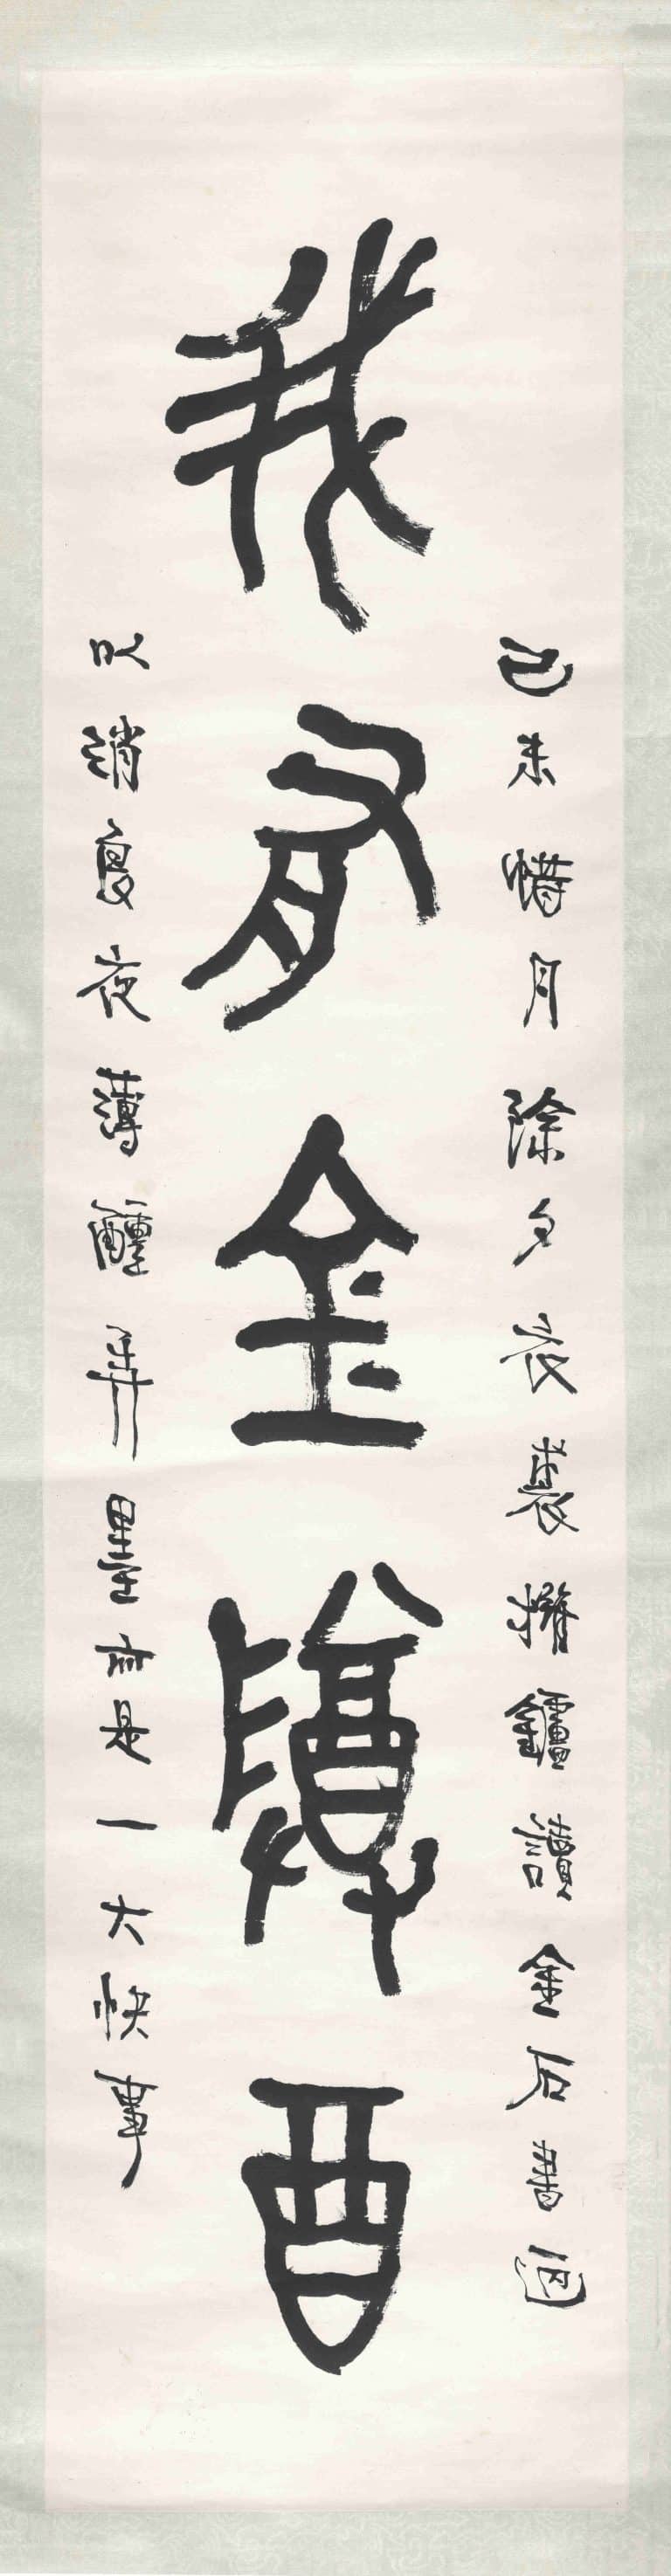 己未蜡月除夕衣裘擁鑪讀金石書迺
我有金尊酉
以消夜薄醺弄墨亦是一大快事